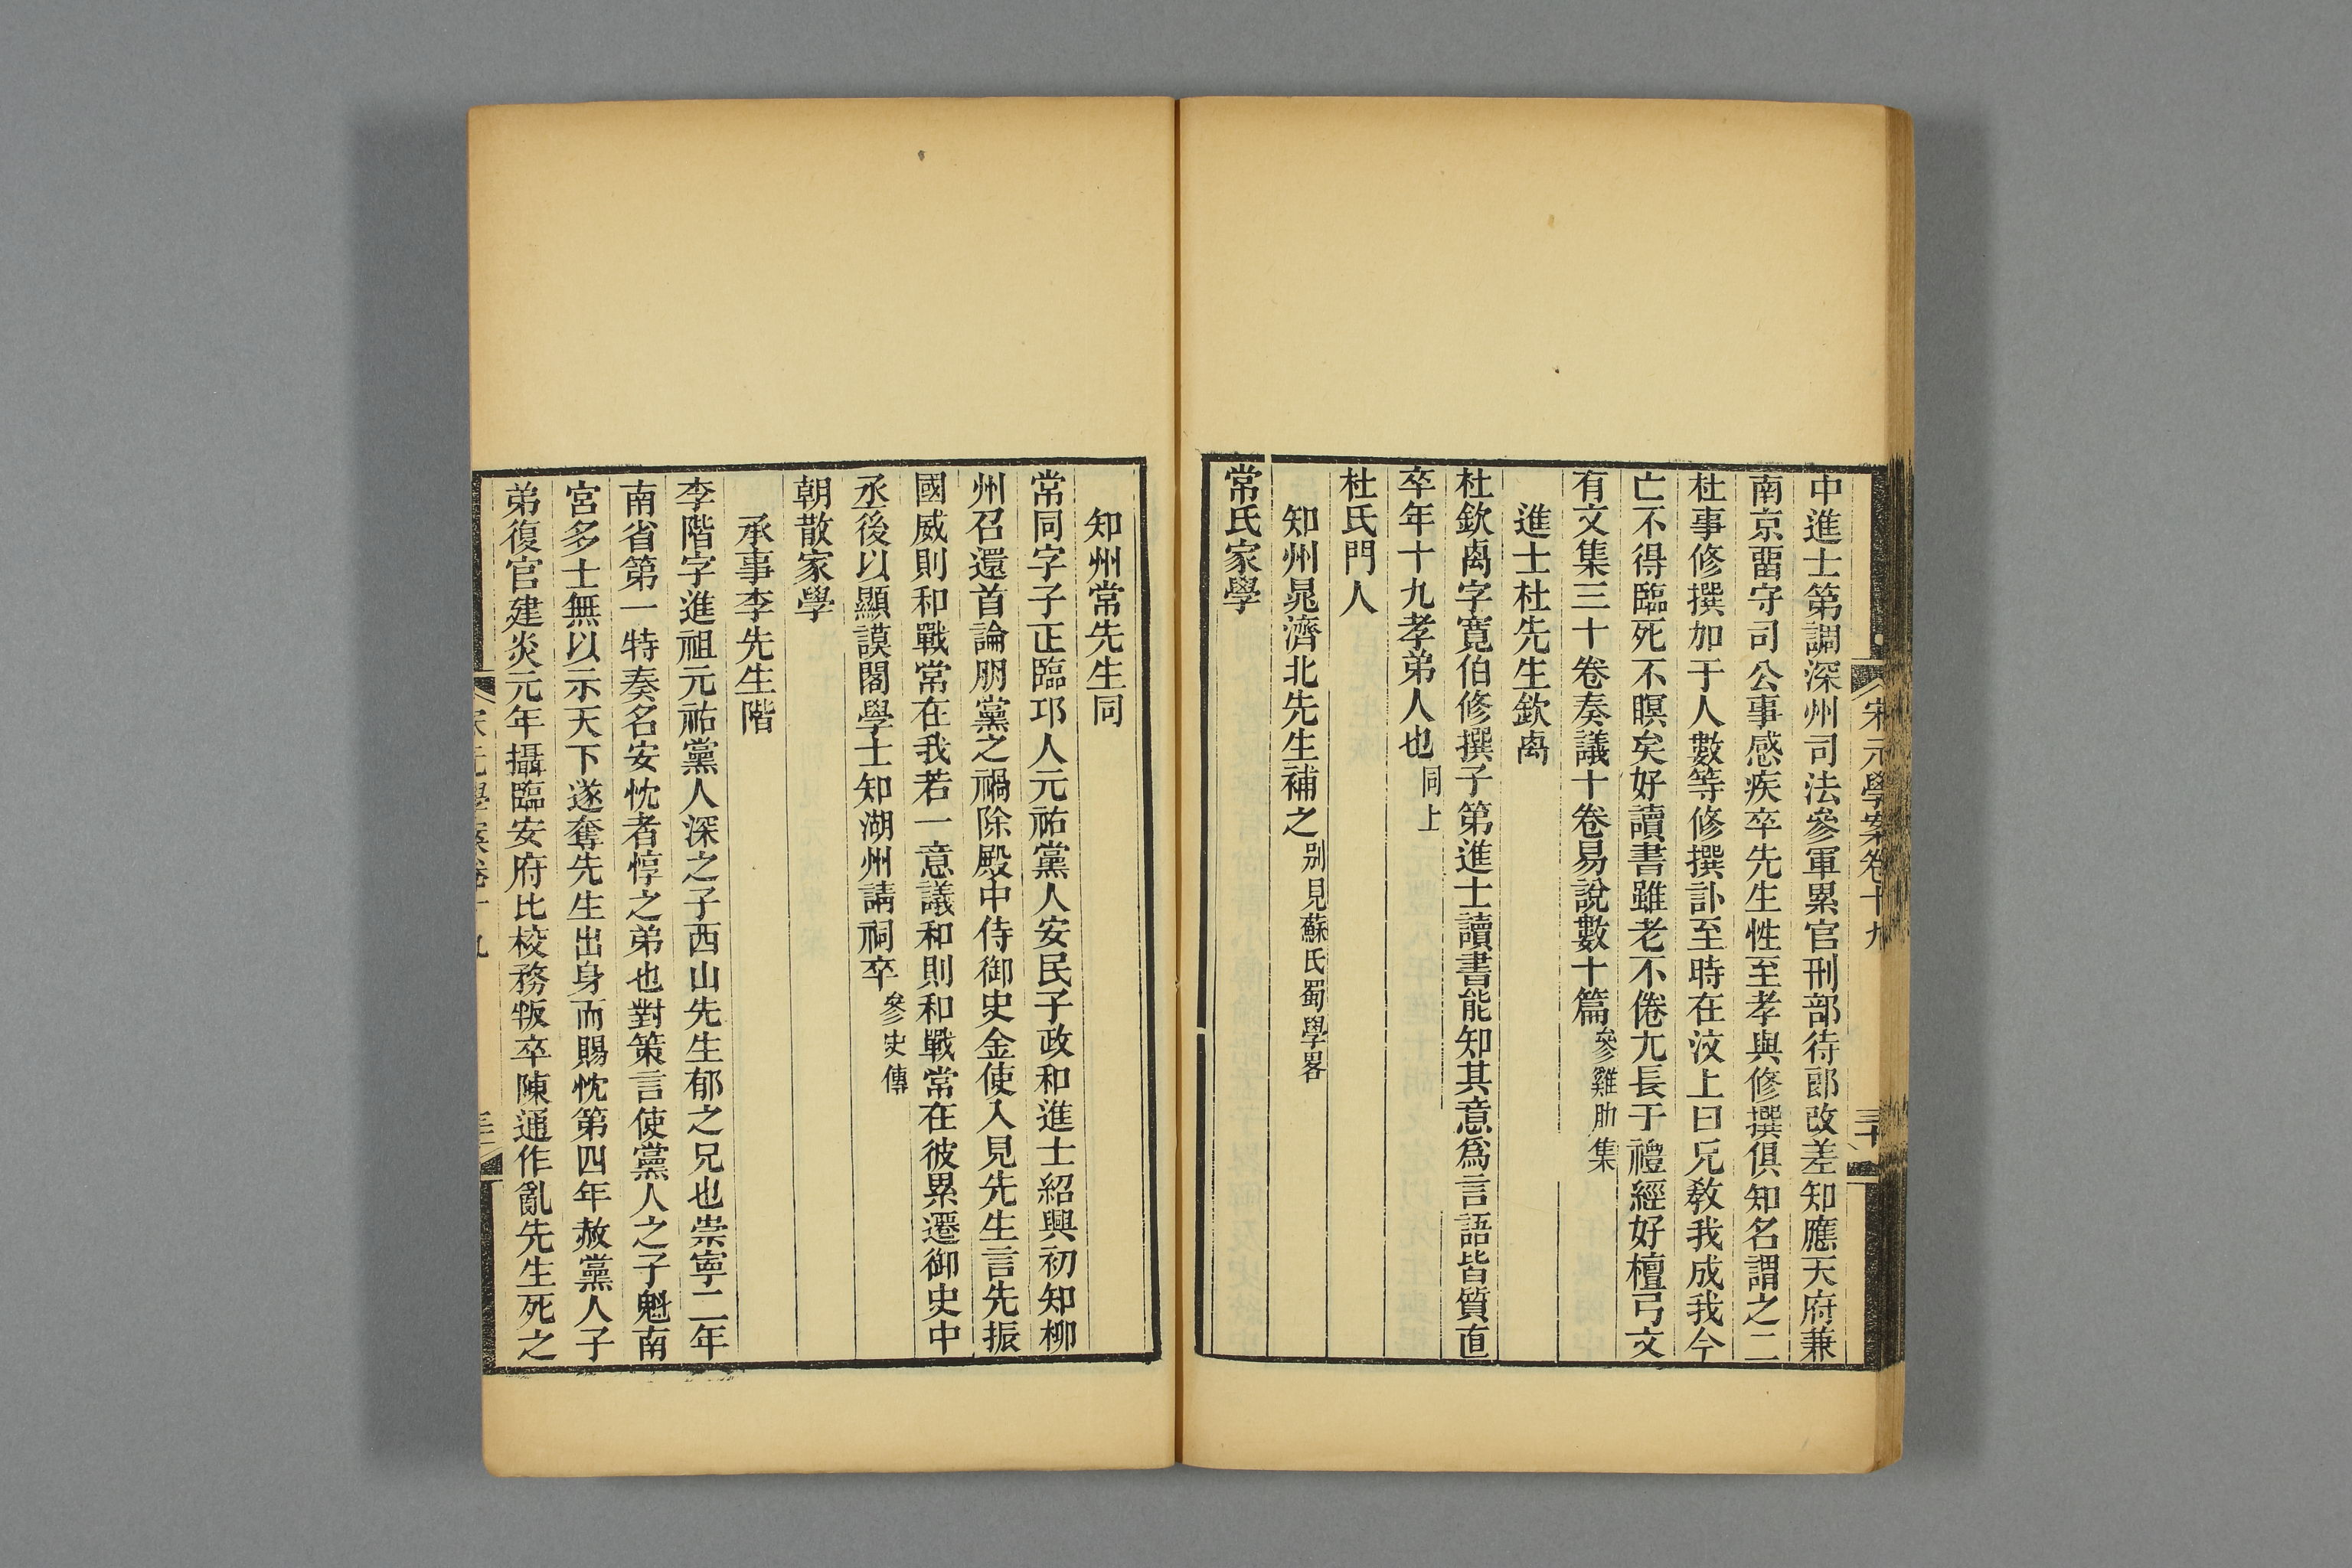 宋元學案卷十九
三十
中進士第調深州司法參軍累官刑部待郎改差知應天府兼
南京畱守司公事感疾卒先生性至孝與修撰俱知名謂之二
杜事修撰加于人數等修撰訃至時在汶上曰兄敎我成我今
亡不得臨死不瞑矣好讀書雖老不倦尢長于禮經好檀弓文
有文集三十卷奏議十卷易說數十篇參雞肋集
進士杜先生欽卨
杜欽卨字寬伯修撰子第進士讀書能知其意爲言語皆質直
卒年十九孝弟人也同上
杜氏門人
知州晁濟北先生補之別見蘇氏蜀學畧
常氏家學
知州常先生同
常同字子正臨邛人元祐黨人安民子政和進士紹興初知柳
州召還首論朋黨之禍除殿中侍御史金使入見先生言先振
國威則和戰常在我若一意議和則和戰常在彼累遷御史中
丞後以顯謨閣學士知湖州請祠卒參史傳
朝散家學
承事李先生階
李階字進祖元祐黨人深之子西山先生郁之兄也崇寧二年
南省第一特奏名安忱者惇之弟也對策言使黨人之子魁南
宮多士無以示天下遂奪先生出身而賜忱第四年赦黨人子
弟復官建炎元年攝臨安府比校務叛卒陳通作亂先生死之
宋元學案卷十九